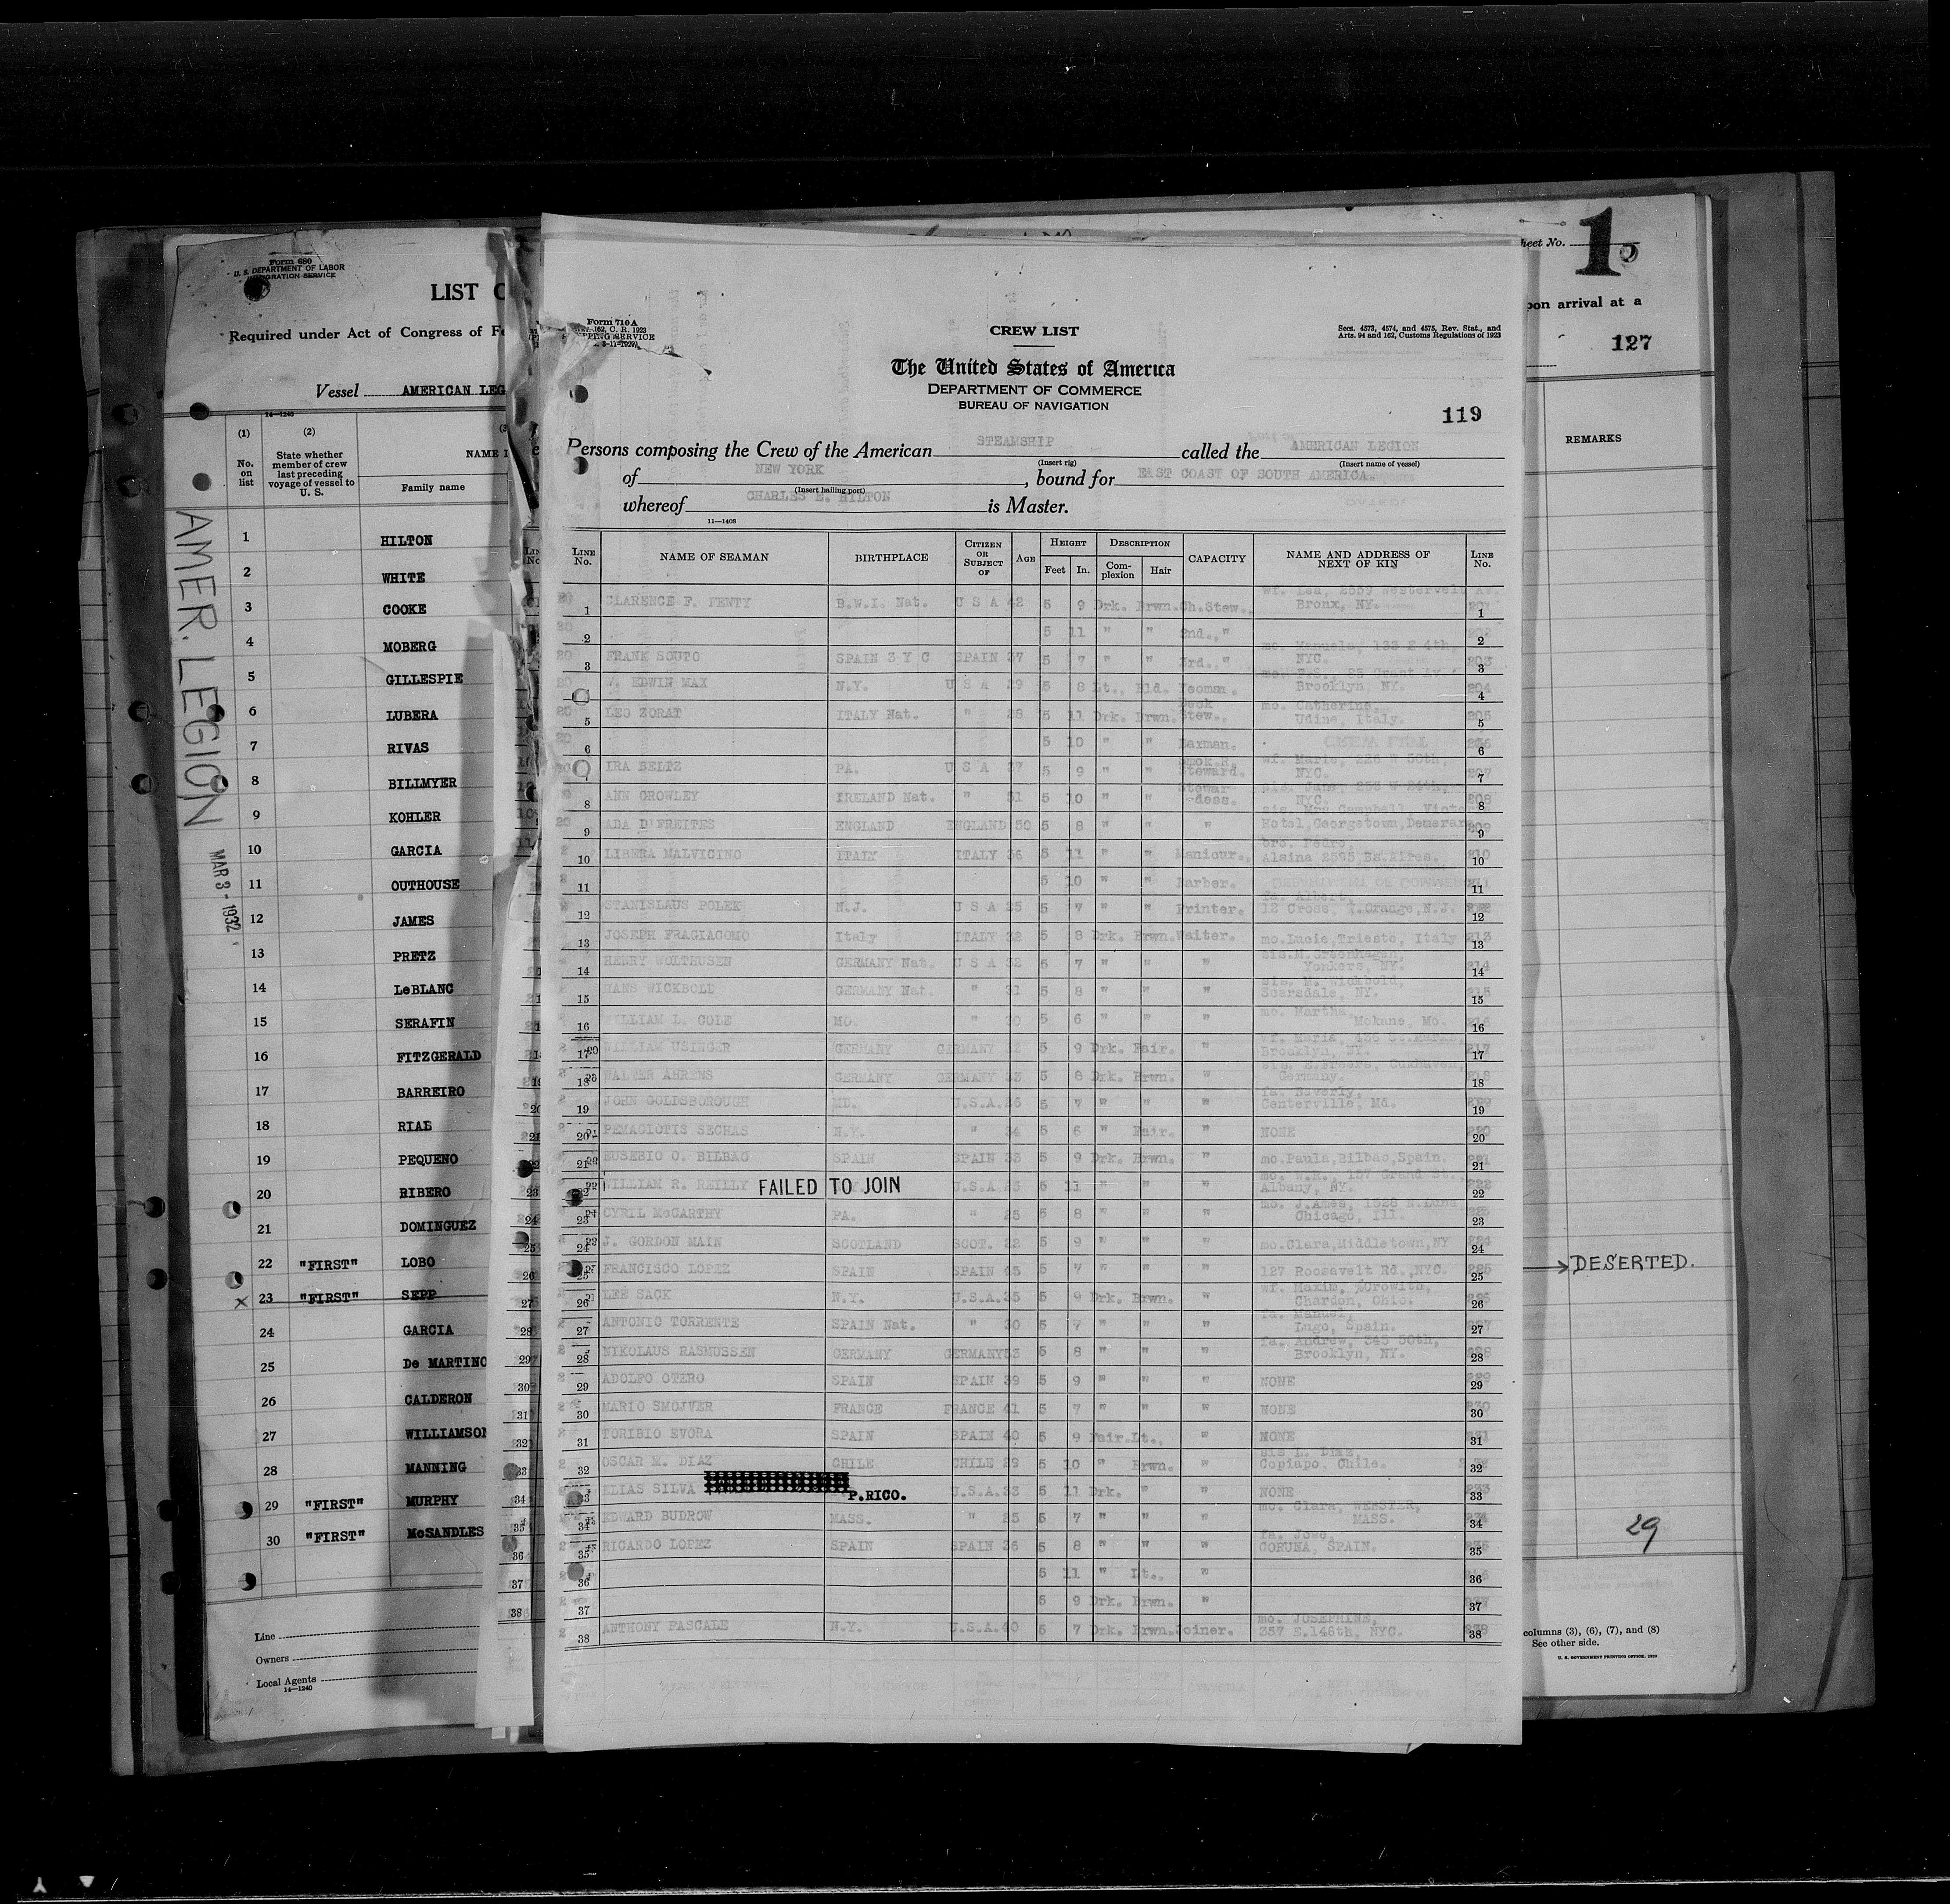 Form 680
U. S. DEPARTMENT OF LABOR
IMMIGRATION SERVICE
LIST
Required under Act of Congress of
Vessel AMERICAN LEG
14—1240
(1) (2)
No. on list
State whether member of crew last preceding voyage of vessel to U. S.
NAME
Family name
AMER. LEGION
MAR 3 - 1932
1 HILTON
2 WHITE
3 COOKE
4 MOBERG
5 GILLESPIE
6 LUBERA
7 RIVAS
8 BILLMYER
9 KOHLER
10 GARCIA
11 OUTHOUSE
12 JAMES
13 PRETZ
14 LeBLANC
15 SERAFIN
16 FITZGERALD
17 BARREIRO
18 RIAL
19 PEQUENO
20 RIBERO
21 DOMINGUEZ
22 "FIRST" LOBO
x 23 "FIRST" SEPP
24 GARCIA
25 De MARTINO
26 CALDERON
27 WILLIAMSON
28 MANNING
29 "FIRST" MURPHY
30 "FIRST" McSANDLES
Line
Owners
Local Agents
14—1240
Form 710 A
CREW LIST
Secs. 4573, 4574, and 4575, Rev. Stat., and
Arts. 94 and 162, Customs Regulations of 1923
The United States of America
DEPARTMENT OF COMMERCE
BUREAU OF NAVIGATION
119
Persons composing the Crew of the American STEAMSHIP called the AMERICAN LEGION
(Insert rig) (Insert name of vessel)
of NEW YORK, bound for EAST COAST OF SOUTH AMERICA.
(Insert hailing port)
whereof CHARLES E. HILTON is Master.
11—1408
LINE No. NAME OF SEAMAN BIRTHPLACE CITIZEN OR SUBJECT OF AGE HEIGHT Feet In. DESCRIPTION Complexion Hair CAPACITY NAME AND ADDRESS OF NEXT OF KIN LINE No.
1 CLARENCE F. FENTY B.W.I. Nat. U S A 42 5 9 Drk. Brwn. Ch.Stew. wf. Lea, 2539 Westervelt Av. Bronx, NY. 1
2 5 11 " " 2nd.," 2
3 FRANK SOUTO SPAIN 3 Y C SPAIN 37 5 7 " " 3rd.," mo. Manuela, 133 E 4th, NYC. 3
4 EDWIN MAX N.Y. U S A 29 5 8 Lt., Bld. Yeoman. Brooklyn, NY. 4
5 LEO ZORAT ITALY Nat. " 28 5 11 Drk. Brwn. Deck Stew., mo. Catherine, Udine, Italy. 5
6 5 10 " " Barman. 6
7 IRA BELTZ PA. U S A 37 5 9 " " Smok.R. Steward. wf. Marie, 226 W 50th, NYC. 7
8 ANN CROWLEY IRELAND Nat. " 31 5 10 " " Stewardess. NYC. 8
9 ADA D'FREITES ENGLAND ENGLAND 50 5 8 " " " sis. Mrs Campbell, Hotel, Georgetown, Demerara 9
10 LIBERA MALVICINO ITALY ITALY 36 5 11 " " Manicur., bro. Pedro, Alsina 2595, Bs.Aires. 10
11 5 10 " " Barber. 11
12 STANISLAUS POLEK N.J. U S A 25 5 7 " " Printer. fa. Albert, 12 Cross, W.Orange, N.J. 12
13 JOSEPH FRAGIACOMO Italy ITALY 32 5 8 Drk. Brwn. Waiter. mo.Lucie, Trieste, Italy 13
14 HENRY WOLTHUSEN GERMANY Nat. U S A 32 5 7 " " " Yonkers, NY. 14
15 HANS WICKBOLD GERMANY Nat. " 31 5 8 " " " sis. M. Wickbold, Scarsdale, NY. 15
16 WILLIAM L. COLE MO. " 30 5 6 " " " mo. Martha, Mokane, Mo. 16
17 WILLIAM USINGER GERMANY GERMANY 32 5 9 Drk. Fair. " wf. Maria, Brooklyn, NY. 17
18 WALTER AHRENS GERMANY GERMANY 33 5 8 Drk. Brwn. " Cuxhaven, Germany. 18
19 JOHN GOLDSBOROUGH MD. U.S.A. 26 5 7 " " " fa. Beverly, Centerville, Md. 19
20 PEMAGIOTIS SECHAS N.Y. " 34 5 6 " Fair. " NONE 20
21 EUSEBIO O. BILBAO SPAIN SPAIN 33 5 9 Drk. Brwn. " mo.Paula, Bilbao, Spain. 21
22 WILLIAM R. REILLY FAILED TO JOIN U.S.A. 5 11 " " " 157 Grand St., Albany, NY. 22
23 CYRIL McCARTHY PA. " 25 5 8 " " " Chicago, Ill. 23
24 J. GORDON MAIN SCOTLAND SCOT. 22 5 9 " " " mo.Clara, Middletown, NY 24
25 FRANCISCO LOPEZ SPAIN SPAIN 45 5 7 " " " 127 Roosevelt Rd., NYC. 25
26 LEE SACK N.Y. U.S.A. 35 5 9 Drk. Brwn. " wf. Maxim, %Crowith, Chardon, Ohio. 26
27 ANTONIO TORRENTE SPAIN Nat. " 30 5 7 " " " fa. Manuel, Lugo, Spain. 27
28 NIKOLAUS RASMUSSEN GERMANY GERMANY 53 5 8 " " " fa. Andrew, 343 50th, Brooklyn, NY. 28
29 ADOLFO OTERO SPAIN SPAIN 39 5 9 " " " NONE 29
30 MARIO SMOJVER FRANCE FRANCE 41 5 7 " " " NONE 30
31 TORIBIO EVORA SPAIN SPAIN 40 5 9 Fair. Lt., " NONE 31
32 OSCAR M. DIAZ CHILE CHILE 29 5 10 " Brwn. " sis L. Diaz, Copiapo, Chile. 32
33 ELIAS SILVA P.RICO. U.S.A. 33 5 11 Drk. " " NONE 33
34 EDWARD BUDROW MASS. " 25 5 7 " " " mo. Clara, WEBSTER, MASS. 34
35 RICARDO LOPEZ SPAIN SPAIN 36 5 8 " " " fa. Jose, CORUNA, SPAIN. 35
36 5 11 " Lt., " 36
37 5 9 Drk. Brwn. " 37
38 ANTHONY PASCALE N.Y. U.S.A. 40 5 7 Drk. Brwn. Joiner. mo. JOSEPHINE, 357 E.146th, NYC. 38
Sheet No. 1
upon arrival at a
127
REMARKS
DESERTED.
29
columns (3), (6), (7), and (8)
See other side.
U. S. GOVERNMENT PRINTING OFFICE: 1929